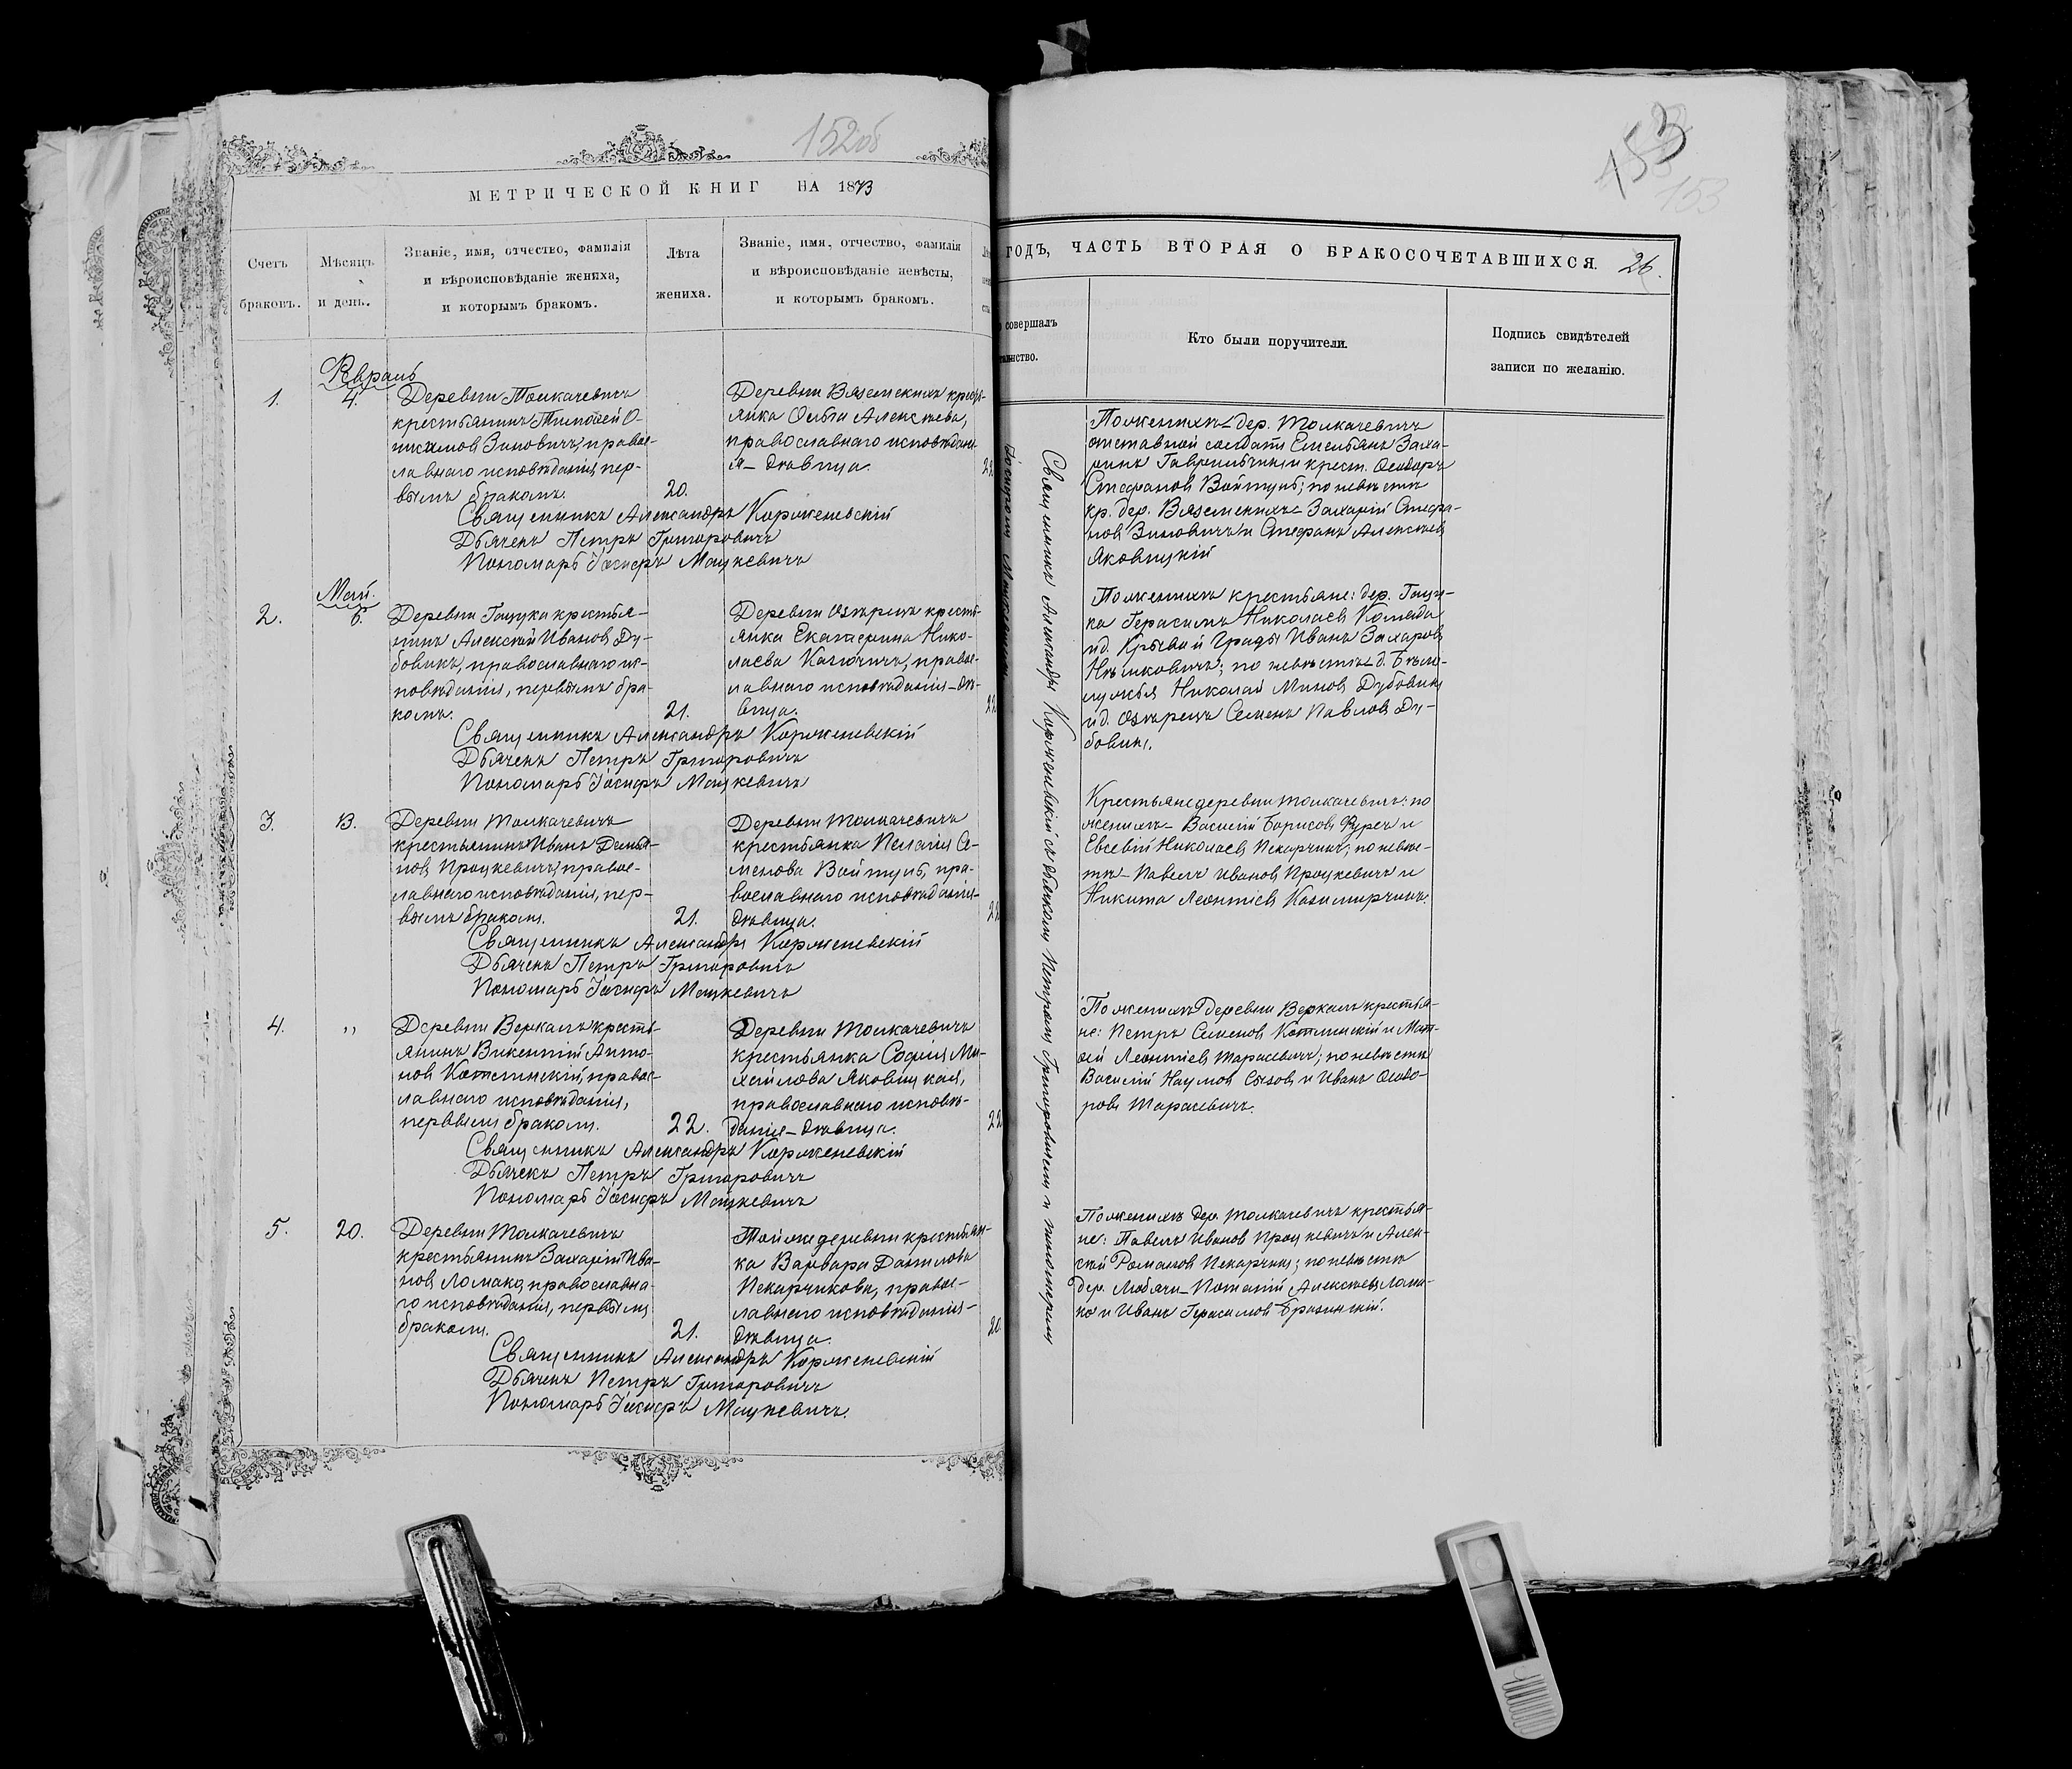 152об
МЕТРИЧЕСКОЙ КНИГ НА 1873
Счетъ браковъ.
Мѣсяцъ и день.
Званіе, имя, отчество, фамилія
и вѣроисповѣданіе жениха,
и которымъ бракомъ.
Лѣта
жениха.
Званіе, имя, отчество, фамилія
и вѣроисповѣданіе невѣсты,
и которымъ бракомъ.
Февраль
1.
4.
Деревни Толкачевичъ
крестьянинъ Тимоѳей О-
нисимовъ Зиновичъ, правос-
лавнаго исповѣданія, пер-
вымъ бракомъ.
20.
Деревни Вяземскихъ кресть-
янка Ольга Алексѣева,
православнаго исповѣдані-
я – дѣвица.
22
Священникъ Александръ Корженевскій
Дьячекъ Петръ Григоровичъ
Пономарь Іосифъ Мацкевичъ
Май.
2.
6.
Деревни Гацука крестья-
нинъ Алексѣй Ивановъ Ду-
бовикъ, православнаго ис-
повѣданія, первымъ бра-
комъ.
21.
Деревни Озѣрецъ кресть-
янка Екатерина Нико-
лаева Казючичъ, правос-
лавнаго исповѣданія – дѣ-
вица.
22
Священникъ Александръ Корженевскій
Дьячекъ Петръ Григоровичъ
Пономарь Іосифъ Мацкевичъ
3.
13.
Деревни Толкачевичъ
крестьянинъ Иванъ Демья-
новъ Процкевичъ, правос-
лавнаго исповѣданія, пер-
вымъ бракомъ.
21.
Деревни Толкачевичъ
крестьянка Пелагія Се-
менова Войтуль, пра-
вославнаго исповѣданія-
дѣвица.
22
Священникъ Александръ Корженевскій
Дьячекъ Петръ Григоровичъ
Пономарь Іосифъ Мацкевичъ
4.
"
Деревни Веркалъ кресть-
янинъ Викентій Анто-
новъ Котлинскій, правос-
лавнаго исповѣданія,
первымъ бракомъ.
22.
Деревни Толкачевичъ
крестьянка Софія Ми-
хайлова Яковицкая,
православнаго исповѣ-
данія – дѣвица.
22
Священникъ Александръ Корженевскій
Дьячекъ Петръ Григоровичъ
Пономарь Іосифъ Мацкевичъ
5.
20.
Деревни Толкачевичъ
крестьянинъ Захарій Ива-
новъ Ломако, православна-
го исповѣданія, первымъ
бракомъ.
21.
Той же деревни крестьян-
ка Варвара Данилова
Пекарчикова, правос-
лавнаго исповѣданія –
дѣвица.
20
Священникъ Александръ Корженевскій
Дьячекъ Петръ Григоровичъ
Пономарь Іосифъ Мацкевичъ.
153
153
ГОДЪ, ЧАСТЬ ВТОРАЯ О БРАКОСОЧЕТАВШИХСЯ. 26.
совершалъ
таинство.
Кто были поручители.
Подпись свидѣтелей
записи по желанію.
Священникъ Александръ Корженевскій съ дьячкомъ Петромъ Григоровичемъ и пономаремъ
Іосифомъ Мацкевичемъ
По женихѣ дер. Толкачевичъ
отставной солдатъ Емельянъ Заха-
ринъ Гаврильчикъ и крест. Ѳеодоръ
Стефановъ Войтуль; по невѣстѣ
кр. дер. Вяземскихъ Захарій Стефа-
новъ Зиновичъ и Стефанъ Алексѣевъ
Яковицкій
По женихѣ крестьяне: дер. Гацу-
ка Герасимъ Николаевъ Коляда
и д. Кривой Гряды Иванъ Захаровъ
по невѣстѣ д. Бѣло-
лужья Николай Миновъ Дубовикъ
и д. Озѣрецъ Семенъ Павловъ Ду-
бовикъ.
Крестьяне деревни Толкачевичъ: по
женихѣ – Василій Борисовъ Фурсъ и
Евсевій Николаевъ Пекарчикъ; по невѣс-
тѣ – Павелъ Ивановъ Процкевичъ и
Никита Леонтіевъ Казимирчикъ.
По женихѣ деревни Веркалъ крестья-
не: Петръ Семеновъ Котлинскій и Мат-
ѳей Леонтіевъ Тарасевичъ; по невѣстѣ
Василій Наумовъ Сызовъ и Иванъ Ѳеодо-
ровъ Тарасевичъ.
По женихѣ дер. Толкачевичъ крестья-
не: Павелъ Ивановъ Процкевичъ и Алек-
сѣй Романовъ Пекарчикъ; по невѣстѣ
дер. Любячи – Потапій Алексѣевъ Лома-
ко и Иванъ Герасимовъ Бразинскій.